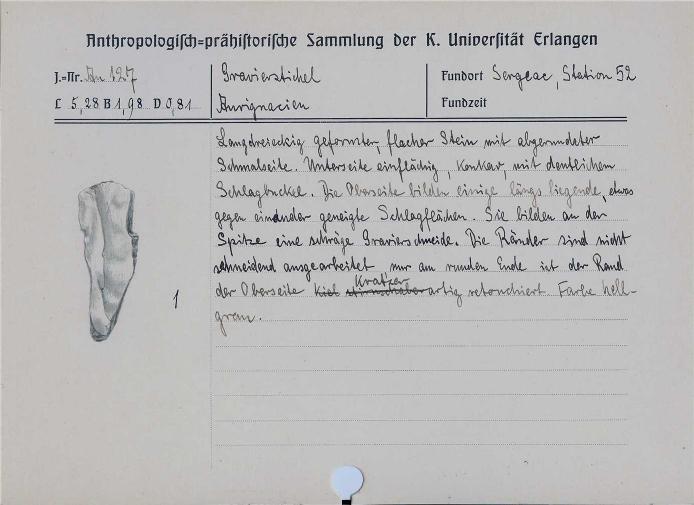 Anthropologiſch=prähiſtoriſche Sammlung der K. Univerſität Erlangen
J.=Nr. An 127
Gravierstichel
Fundort Sergeac, Station 52
L 5,28 B 1,98 D 0,81
Aurignacien
Fundzeit
Langdreieckig geformter, flacher Stein mit abgerundeter
Schmalseite. Unterseite einflächig, konkav, mit deutlichem
Schlagbuckel. Die Oberseite bilden einige längs liegende, etwas
gegen einander geneigte Schlagflächen. Sie bilden an der
Spitze eine schräge Gravierschneide. Die Ränder sind nicht
schneidend ausgearbeitet, nur am runden Ende ist der Rand
Kratzer
der Oberseite artig retouchiert. Farbe hell-
grau.
1